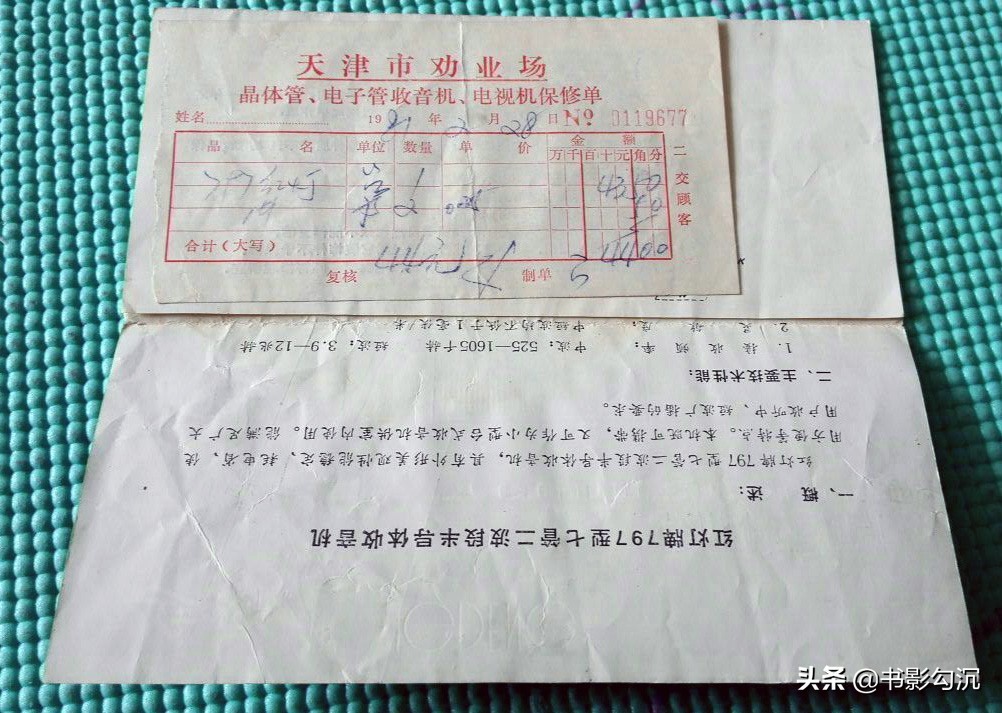 天津市劝业场
晶体管、电子管收音机、电视机保修单
姓名 1981年2月28日 №0119677
品名 单位 数量 单价 金额
万千百十元角分
797红灯 台 1 4320
1# 节 2 0.40 80
合计(大写) 4400
复核 制单
二交顾客
红灯牌797型七管二波段半导体收音机
一、概述:
红灯牌797型七管二波段半导体收音机,具有外形美观性能稳定、耗电省、使
用方便等特点。本机既可携带,又可作为小型台式收音机供室内使用。能满足广大
用户收听中、短波广播的要求。
二、主要技术性能:
1.接收频率: 中波:525—1605千赫 短波:3.9—12兆赫
2.灵敏度: 中短波均不低于1毫伏/米
头条 @书影勾沉